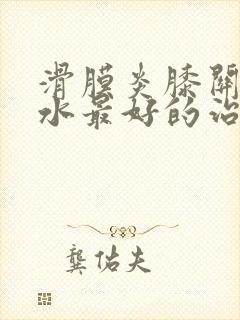 滑膜炎膝關
水最好的治
龔佑夫